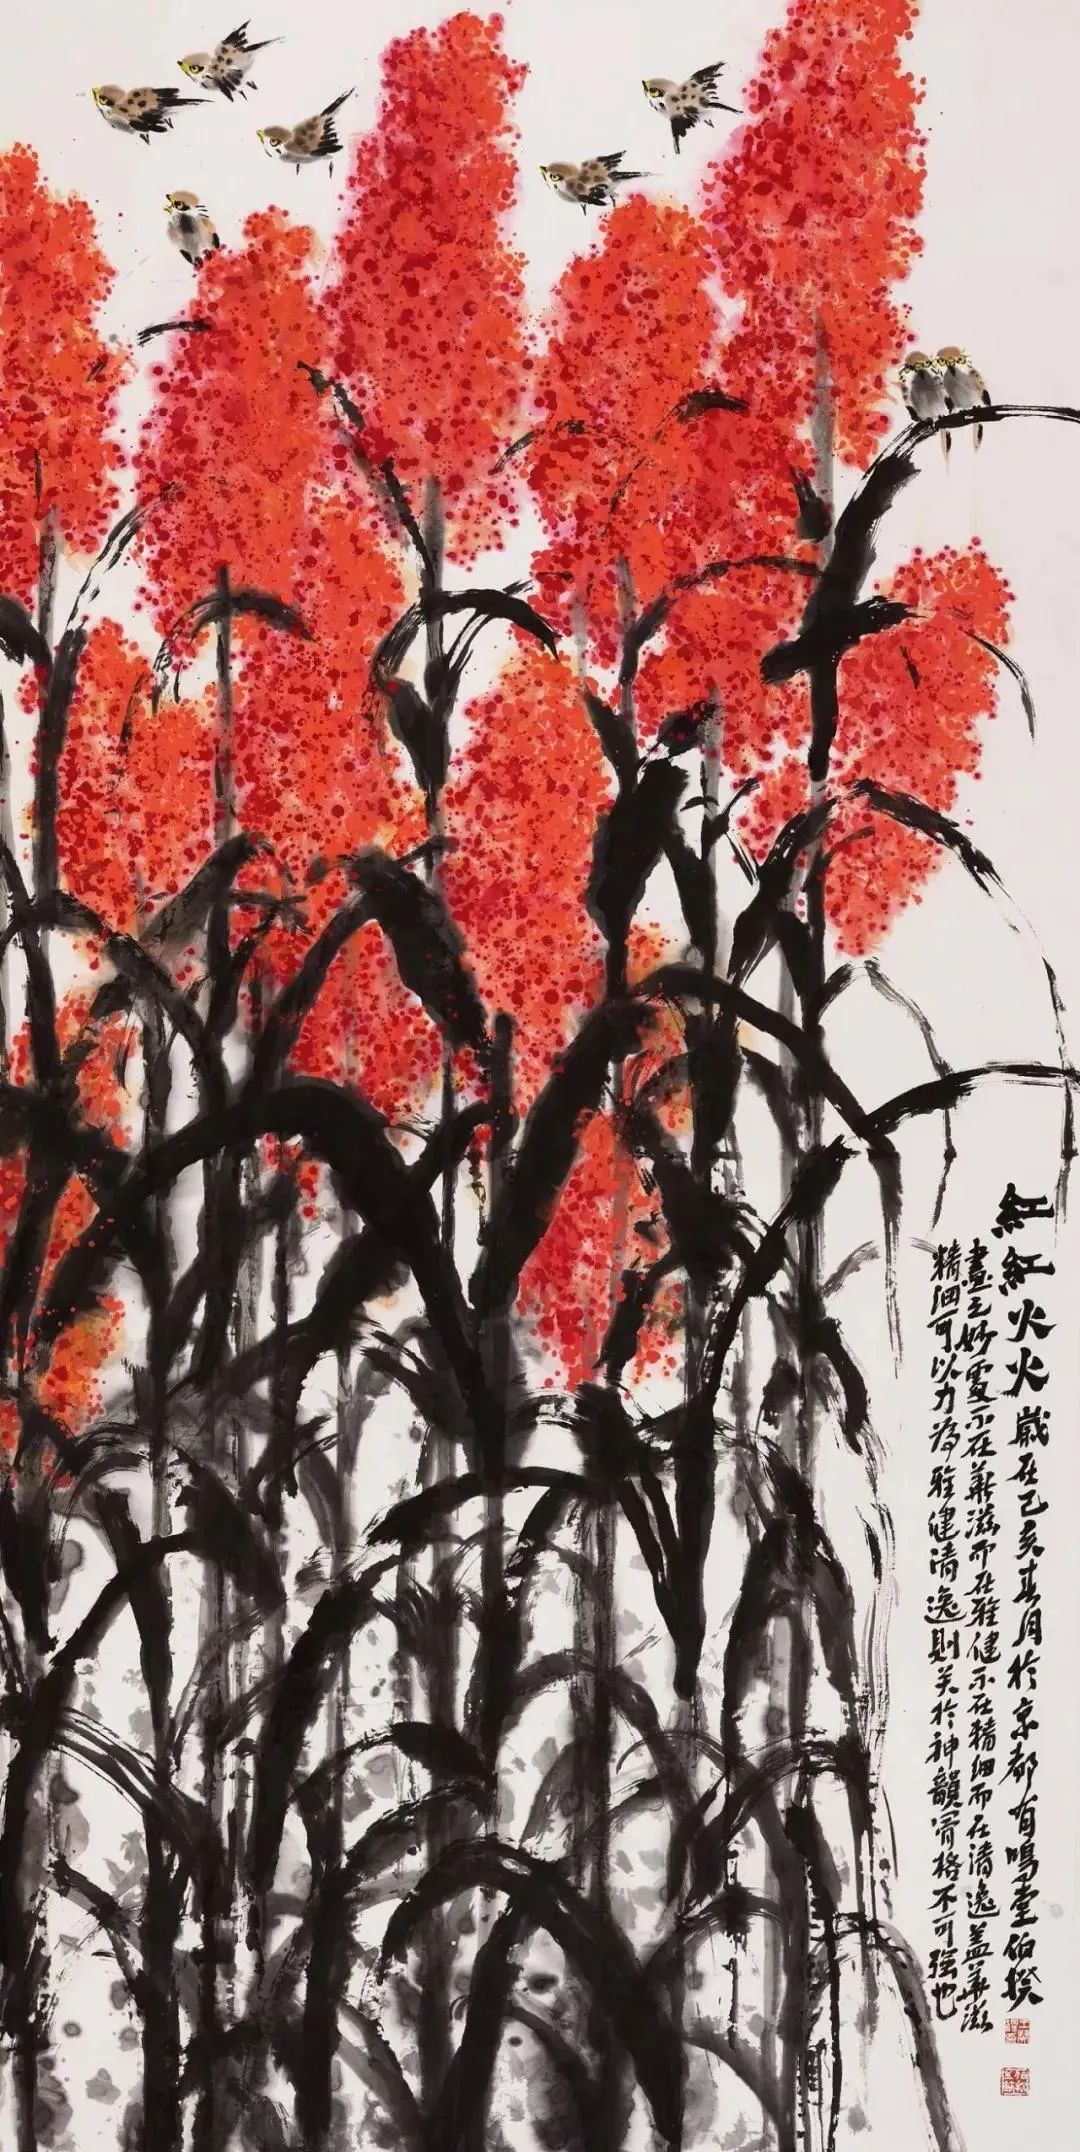 紅紅火火歲在己亥春月於京都有鳴堂伯揆
畫之妙處不在華滋而在雅健不在精細而在清逸蓋華滋
精細可以力為雅健清逸則关於神韻骨格不可強也